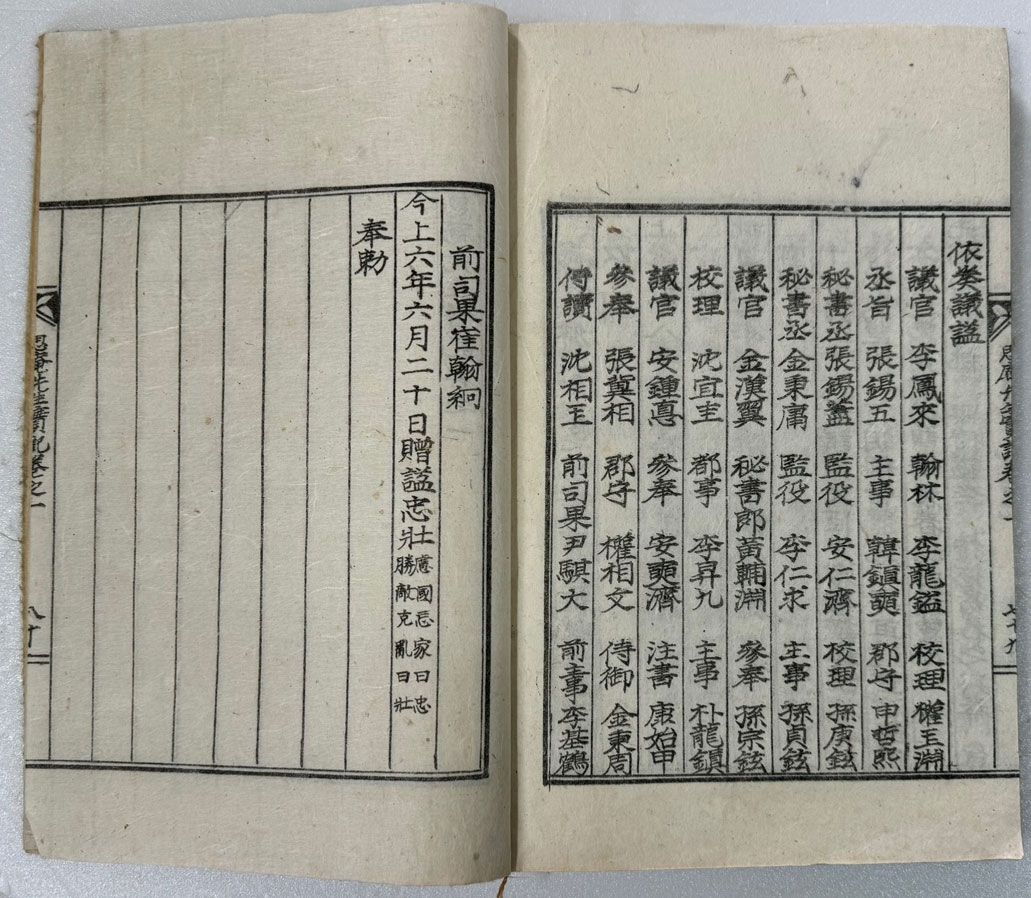 依奏議謚
議官 李鳳來 翰林 李龍鎰 校理 權玉淵
丞旨 張錫五 主事 韓鎭奭 郡守 申哲熙
秘書丞張錫蓋 監役 安仁濟 校理 孫庚鉉
秘書丞金秉庸 監役 李仁求 主事 孫貞鉉
議官 金漢翼 秘書郎黃輔淵 參奉 孫宗鉉
校理 沈宜圭 都事 李昇九 主事 朴龍鎭
議官 安鍾悳 參奉 安奭濟 注書 康始甲
參奉 張冀相 郡守 權相文 侍御 金秉周
侍讀 沈相玉 前司果尹騏大 前主事李基鶴
先生實記卷之一 七十九
前司果崔翰絅
今上六年六月二十日贈謚忠壯慮國忘家曰忠
勝敵克亂曰壯
奉勅
先生實記卷之一 八十